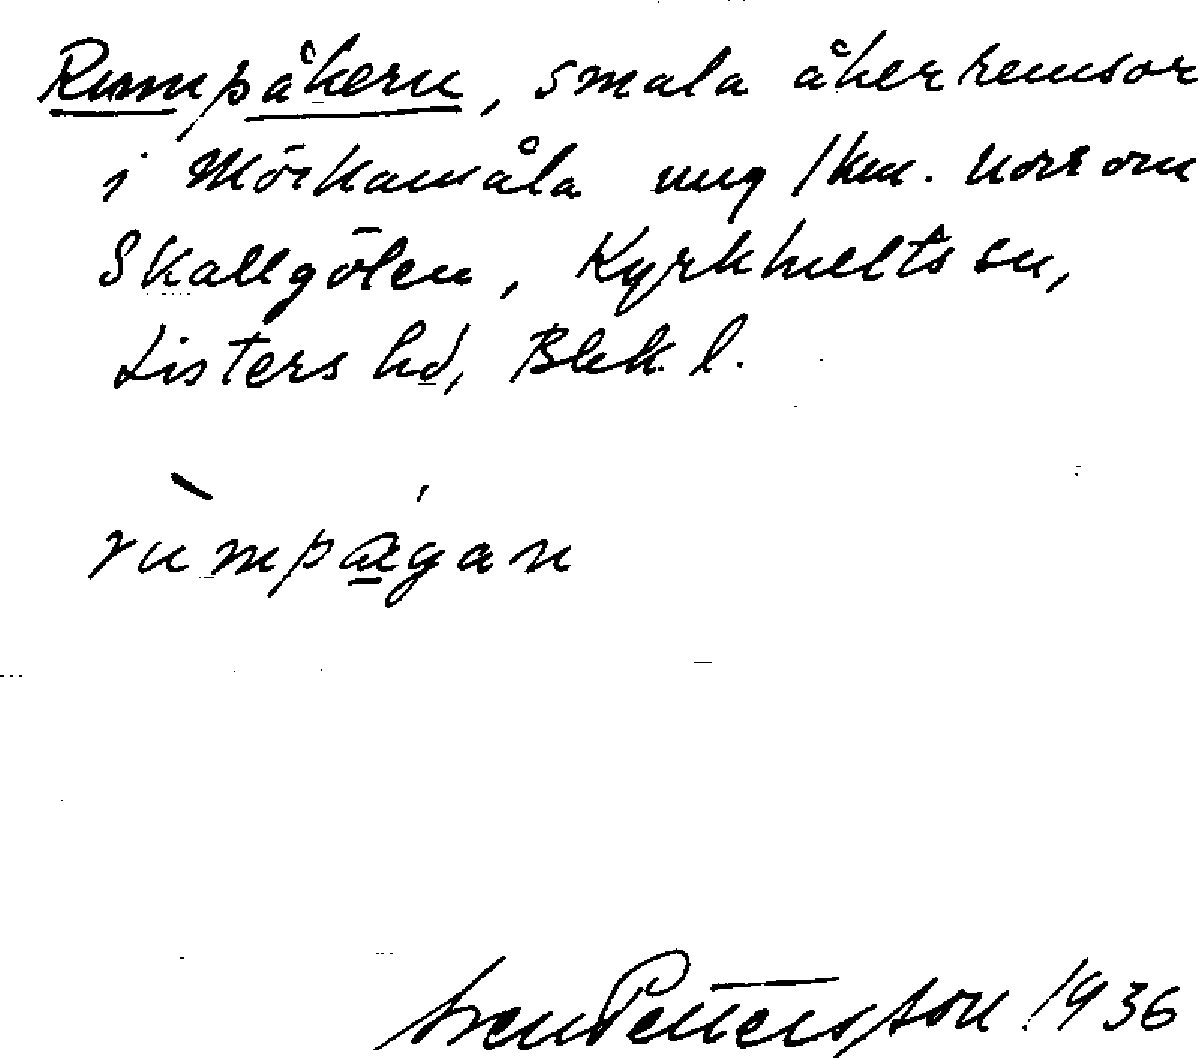 Rumpåkern, smala åkerremsor
i Mörkamåla ung 1 km. norr om
Skallgölen, Kyrkhults sn,
Listers hd, Blek. l.
rùmpá̲gan
Sven Pettersson 1936